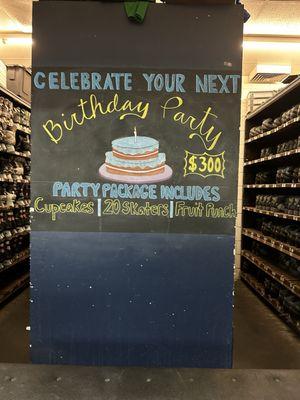 CELEBRATE YOUR NEXT
Birthday Party
$300
PARTY PACKAGE INCLUDES
Cupcakes | 20 Skaters | Fruit Punch